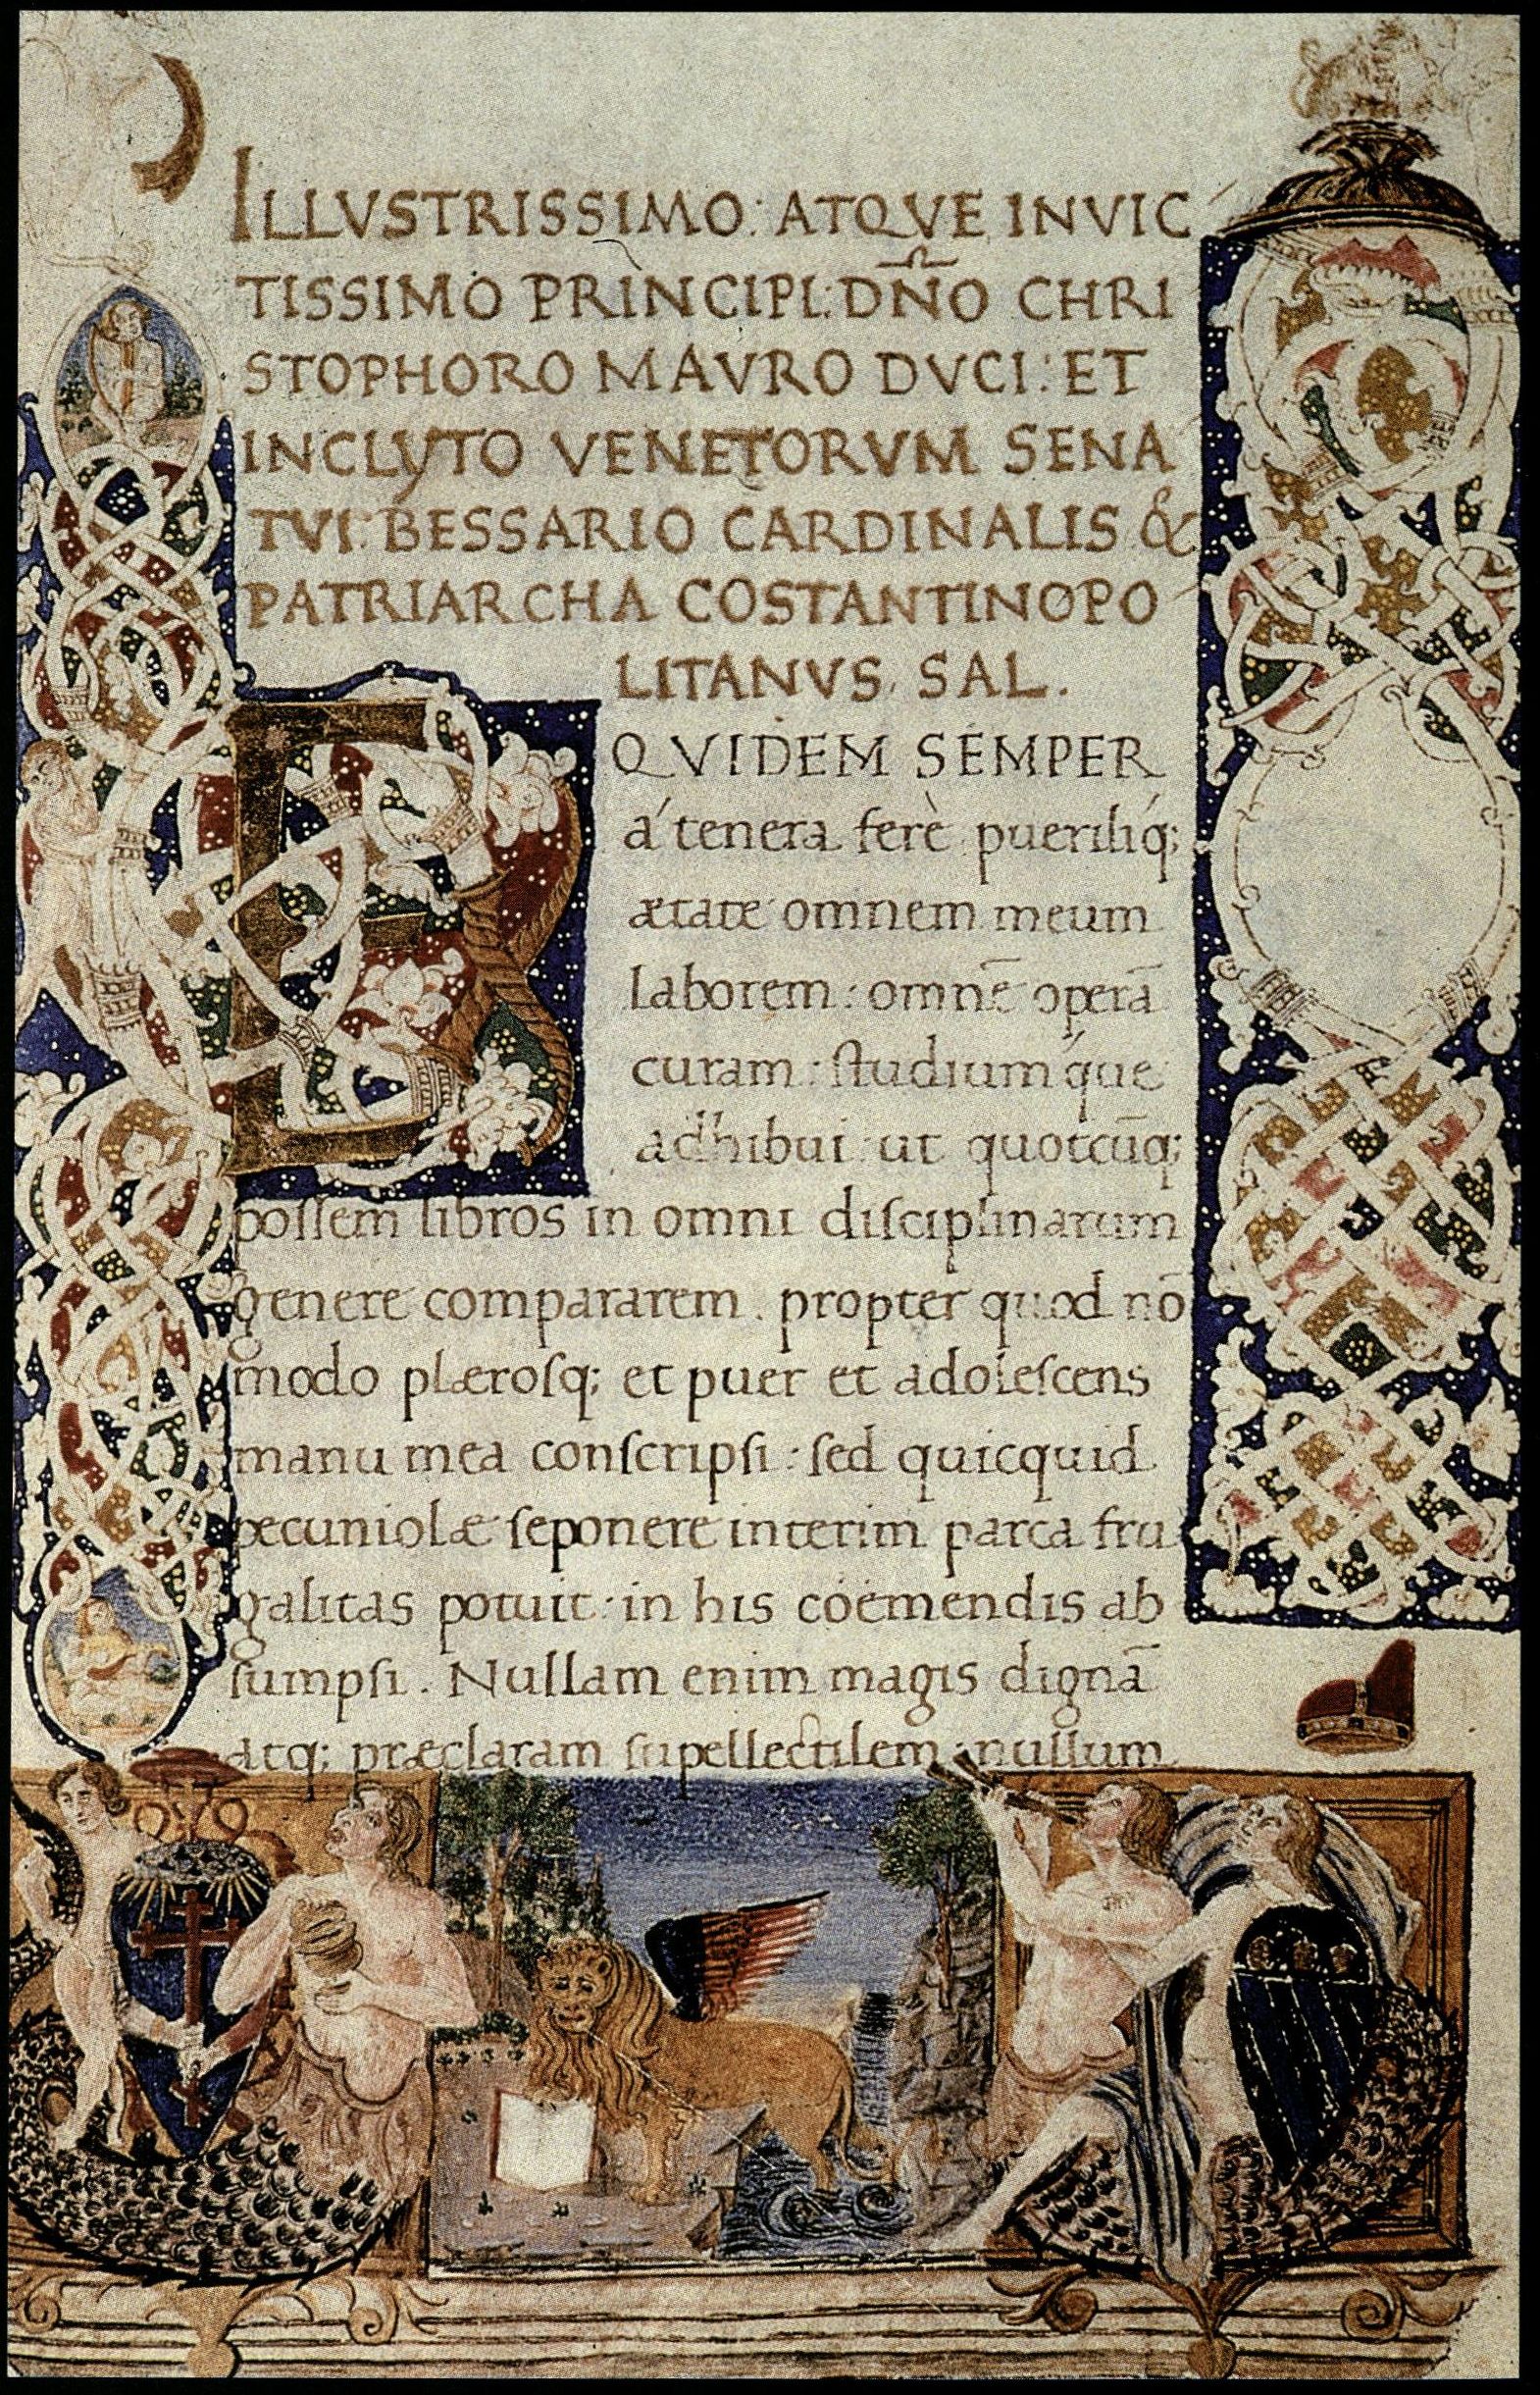 ILLVSTRISSIMO: ATQVE INVIC
TISSIMO PRINCIPI: DÑO CHRI
STOPHORO MAVRO DVCI: ET
INCLYTO VENETORVM SENA
TVI: BESSARIO CARDINALIS &
PATRIARCHA COSTANTINOPO
LITANVS, SAL.
E QVIDEM SEMPER
á tenera ferè puerilíq;
ætate omnem meum
laborem: omnē operā
curam: ſtudiumq́ue
adhibui: ut quotcūq;
poſſem libros in omni diſciplinarum
genere compararem. propter quod nō
modo plæroſq; et puer et adoleſcens
manu mea conſcripſi: ſed quicquid
pecuniolæ ſeponere interim parca fru
galitas potuit: in his coemendis ab
ſumpſi. Nullam enim magis dignā
atq; præclaram ſupellectilem: nullum